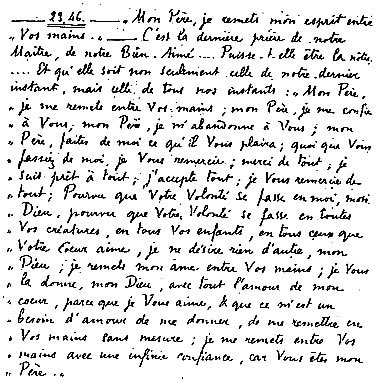 23.46. „ Mon Père, je remets mon esprit entre
„ Vos mains. „ C'est la dernière prière de notre
Maître, de notre Bien-Aimé .... Puisse-t-elle être la nôtre
.... Et qu'elle soit non seulement celle de notre dernier
instant, mais celle de tous nos instants : „ Mon Père,
„ je me remets entre Vos mains ; mon Père, je me confie
„ à Vous ; mon Père, je m'abandonne à Vous ; mon
„ Père, faites de moi ce qu'il Vous plaira ; quoi que Vous
„ fassiez de moi, je Vous remercie ; merci de tout ; je
„ suis prêt à tout ; j'accepte tout ; je Vous remercie de
„ tout ; Pourvu que Votre Volonté se fasse en moi, mon
„ Dieu, pourvu que Votre Volonté se fasse en toutes
„ Vos créatures, en tous Vos enfants, en tous ceux que
„ Votre Cœur aime, je ne désire rien d'autre, mon
„ Dieu ; je remets mon âme entre Vos mains ; je Vous
„ la donne, mon Dieu, avec tout l'amour de mon
„ cœur, parce que je Vous aime, & que ce m'est un
„ besoin d'amour de me donner, de me remettre en
„ Vos mains sans mesure ; je me remets entre Vos
„ mains avec une infinie confiance, car Vous êtes mon
„ Père. „